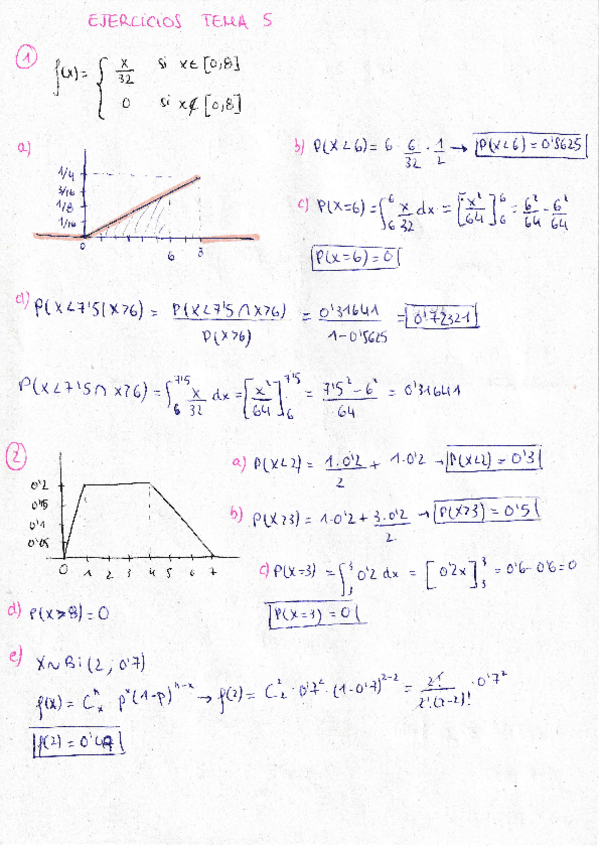 EJERCICIOS TEMA 5
① f(x) = { x/32 si x∈[0,8]
0 si x∉[0,8]
a)
1/4
3/16
1/8
1/16
0 6 8
b) P(X<6) = 6 · 6/32 · 1/2 → P(X<6) = 0'5625
c) P(X=6) = ∫₆⁶ x/32 dx = [x²/64]₆⁶ = 6²/64 - 6²/64
P(X=6) = 0
d) P(X<7'5|X>6) = P(X<7'5 ∩ X>6) / P(X>6) = 0'31641 / 1-0'5625 = 0'72321
P(X<7'5 ∩ X>6) = ∫₆^7'5 x/32 dx = [x²/64]₆^7'5 = 7'5²-6² / 64 = 0'31641
②
0'2
0'15
0'1
0'05
0 1 2 3 4 5 6 7
a) P(X<2) = 1·0'2 / 2 + 1·0'2 → P(X<2) = 0'3
b) P(X>3) = 1·0'2 + 3·0'2 / 2 → P(X>3) = 0'5
c) P(X=3) = ∫₃³ 0'2 dx = [0'2x]₃³ = 0'6-0'6=0
P(X=3) = 0
d) P(X≥8) = 0
e)
X~Bi(2; 0'7)
f(x) = Cₓⁿ pˣ(1-p)ⁿ⁻ˣ → f(2) = C₂² · 0'7² · (1-0'7)²⁻² = 2! / 2!·(2-2)! · 0'7²
f(2) = 0'49